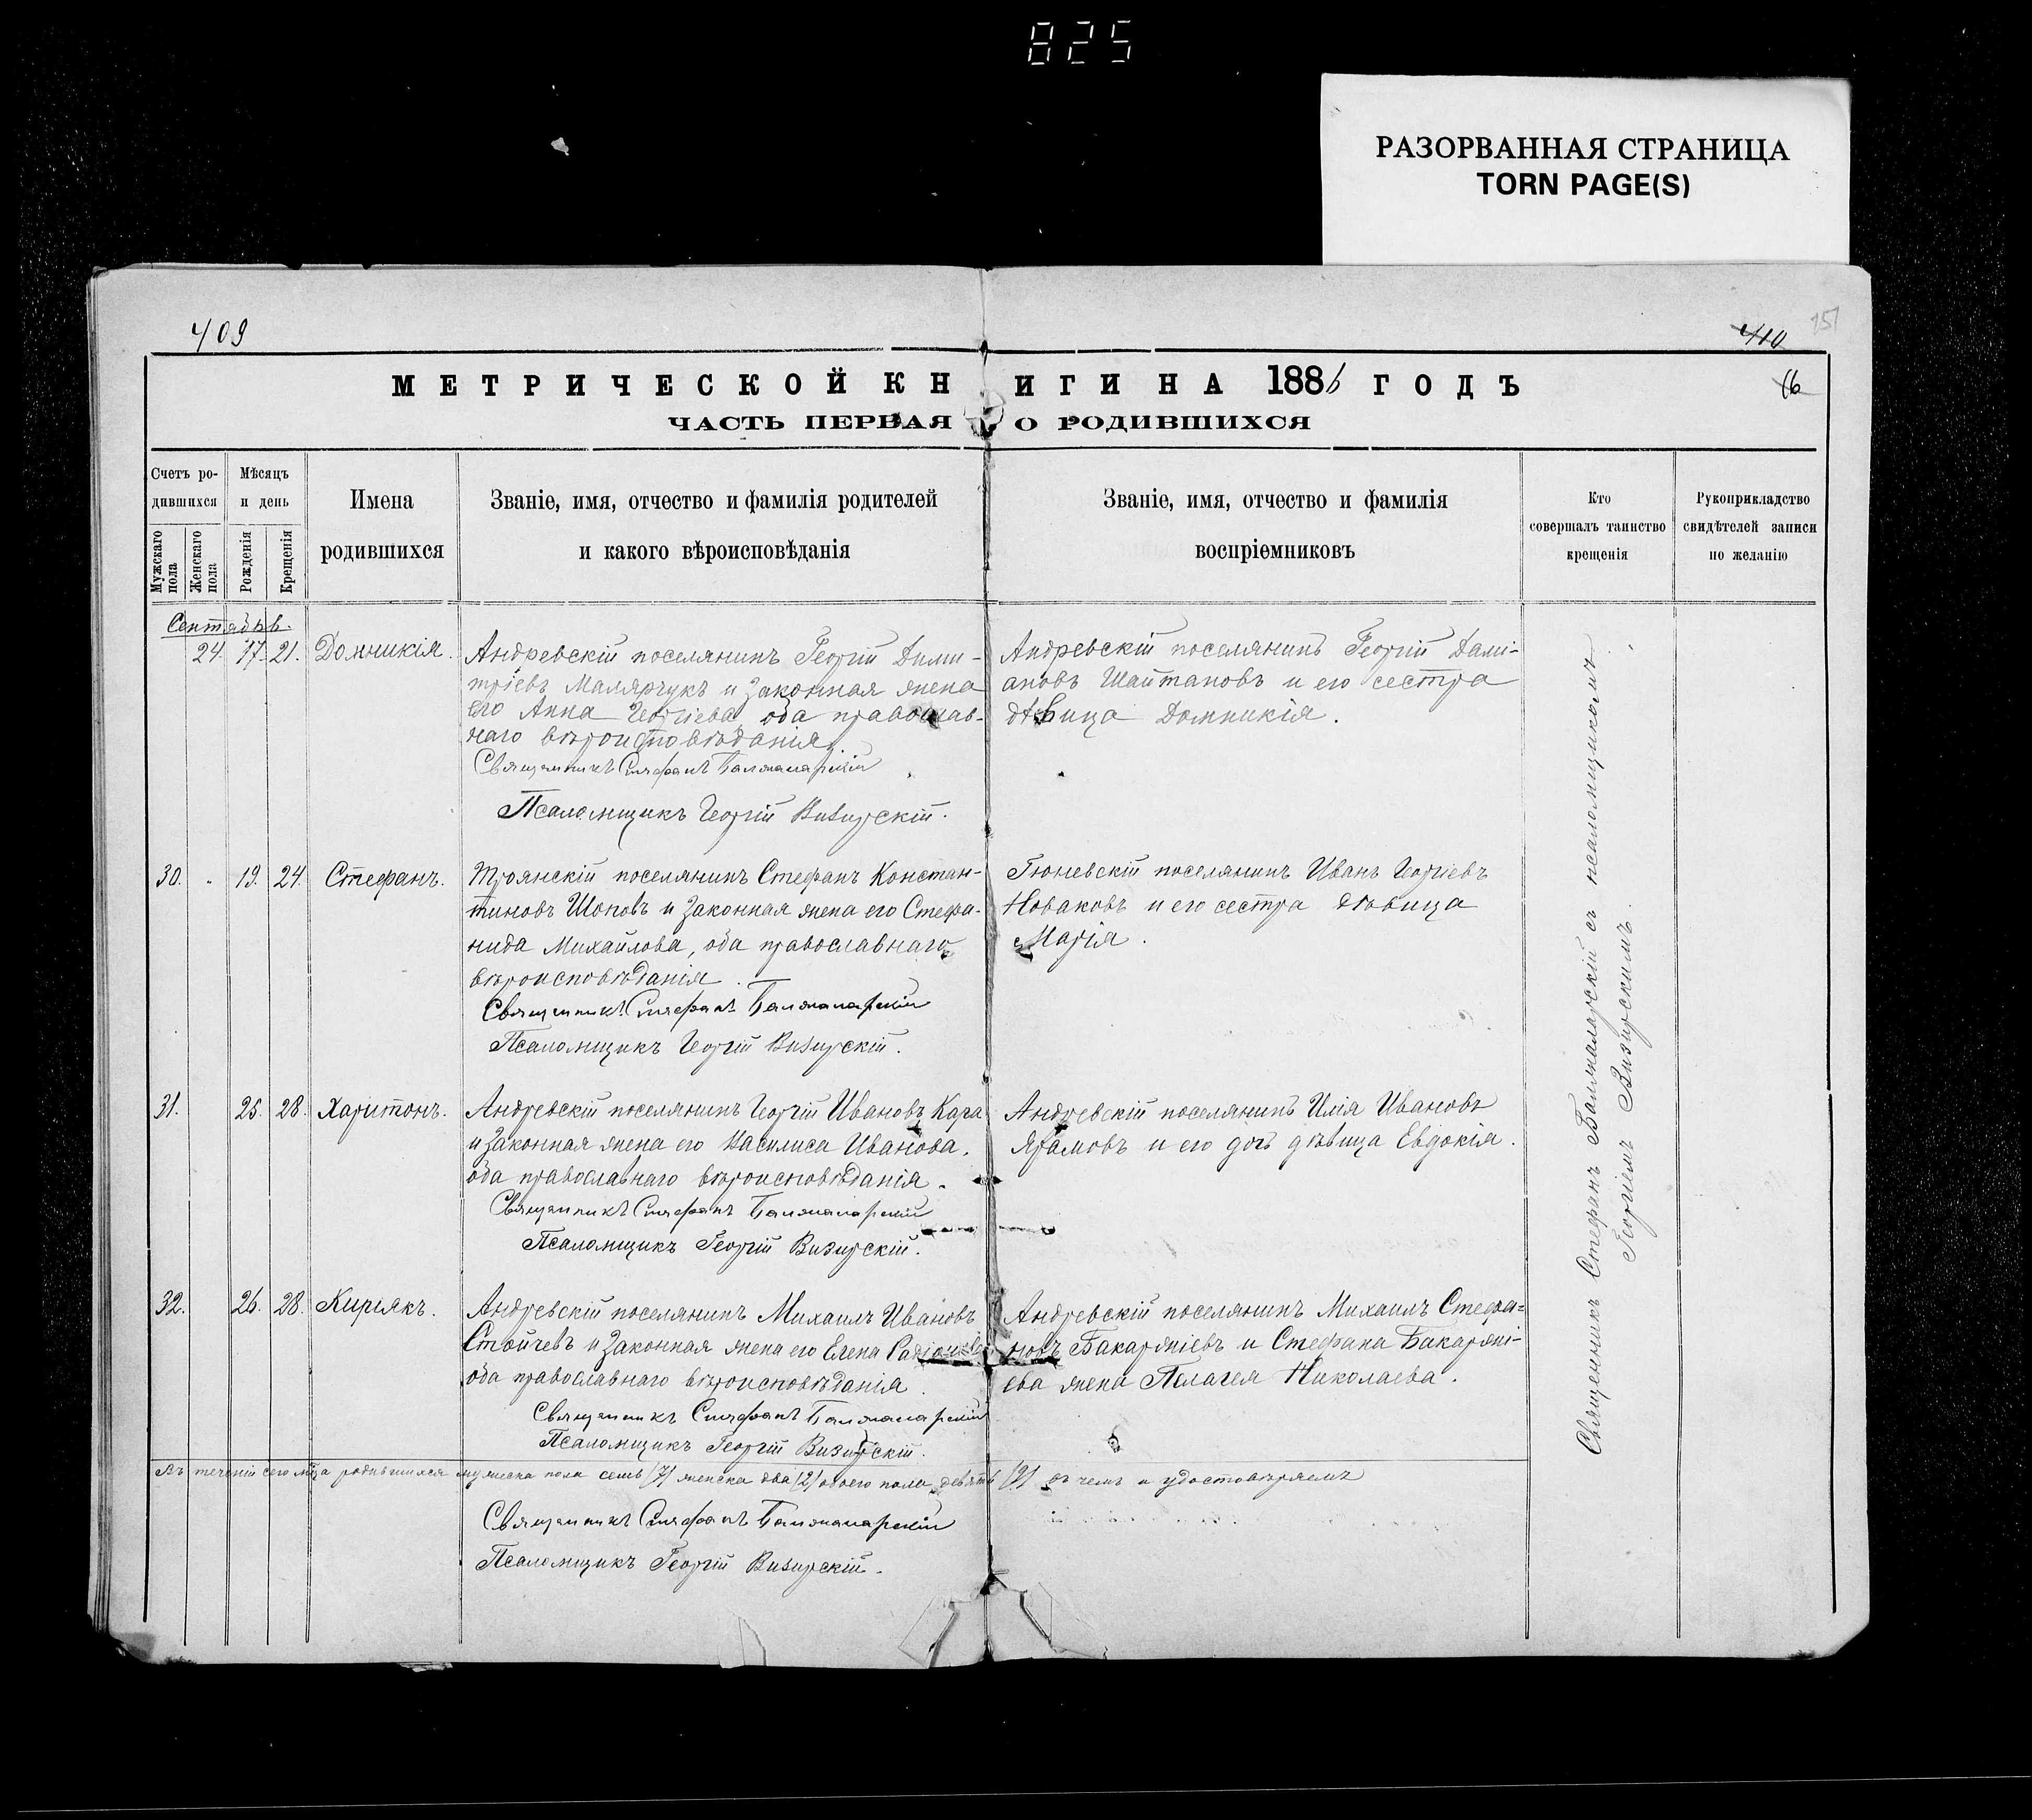 825
РАЗОРВАННАЯ СТРАНИЦА
TORN PAGE(S)
409
410
151
МЕТРИЧЕСКОЙ КНИГИ НА 1886 ГОДЪ
16
ЧАСТЬ ПЕРВАЯ О РОДИВШИХСЯ
Счетъ ро-
дившихся
Мужскаго пола
Женскаго пола
Мѣсяцъ
и день
Рожденія
Крещенія
Имена
родившихся
Званіе, имя, отчество и фамилія родителей
и какого вѣроисповѣданія
Званіе, имя, отчество и фамилія
воспріемниковъ
Кто
совершалъ таинство
крещенія
Рукоприкладство
свидѣтелей записи
по желанію
Сентябрь.
24. 17. 21. Домникія.
Андреевскій поселянинъ Георгій Дими-
тріевъ Малярчукъ и законная жена
его Анна Георгіева, оба православ-
наго вѣроисповѣданія.
Священникъ Стефанъ Балжаларскій
Псаломщикъ Георгій Визирскій.
Андреевскій поселянинъ Георгій Дами-
ановъ Шайтановъ и его сестра
дѣвица Домникія.
30. „ 19. 24. Стефанъ.
Троянскій поселянинъ Стефанъ Констан-
тиновъ Шоповъ и законная жена его Стефа-
нида Михайлова, оба православнаго
вѣроисповѣданія.
Священникъ Стефанъ Балжаларскій
Псаломщикъ Георгій Визирскій.
Гюневскій поселянинъ Иванъ Георгіевъ
Новаковъ и его сестра дѣвица
Марія.
31. 25. 28. Харитонъ.
Андреевскій поселянинъ Георгій Ивановъ Кара
и законная жена его Василиса Иванова,
оба православнаго вѣроисповѣданія.
Священникъ Стефанъ Балжаларскій
Псаломщикъ Георгій Визирскій.
Андреевскій поселянинъ Илія Ивановъ
Ярамовъ и его дочь дѣвица Евдокія.
32. 26. 28. Киріякъ.
Андреевскій поселянинъ Михаилъ Ивановъ
Стойчевъ и законная жена его Елена
оба православнаго вѣроисповѣданія.
Священникъ Стефанъ Балжаларскій
Псаломщикъ Георгій Визирскій.
Андреевскій поселянинъ Михаилъ Стефа-
новъ Бакаржіевъ и Стефана Бакаржі-
ева жена Пелагея Николаева.
Въ теченіи сего м-ца родившихся мужеска пола семь (7) женска два (2) обоего пола девять (9) въ чемъ и удостовѣряемъ
Священникъ Стефанъ Балжаларскій
Псаломщикъ Георгій Визирскій.
Священникъ Стефанъ Балжаларскій съ псаломщикомъ
Георгіемъ Визирскимъ.